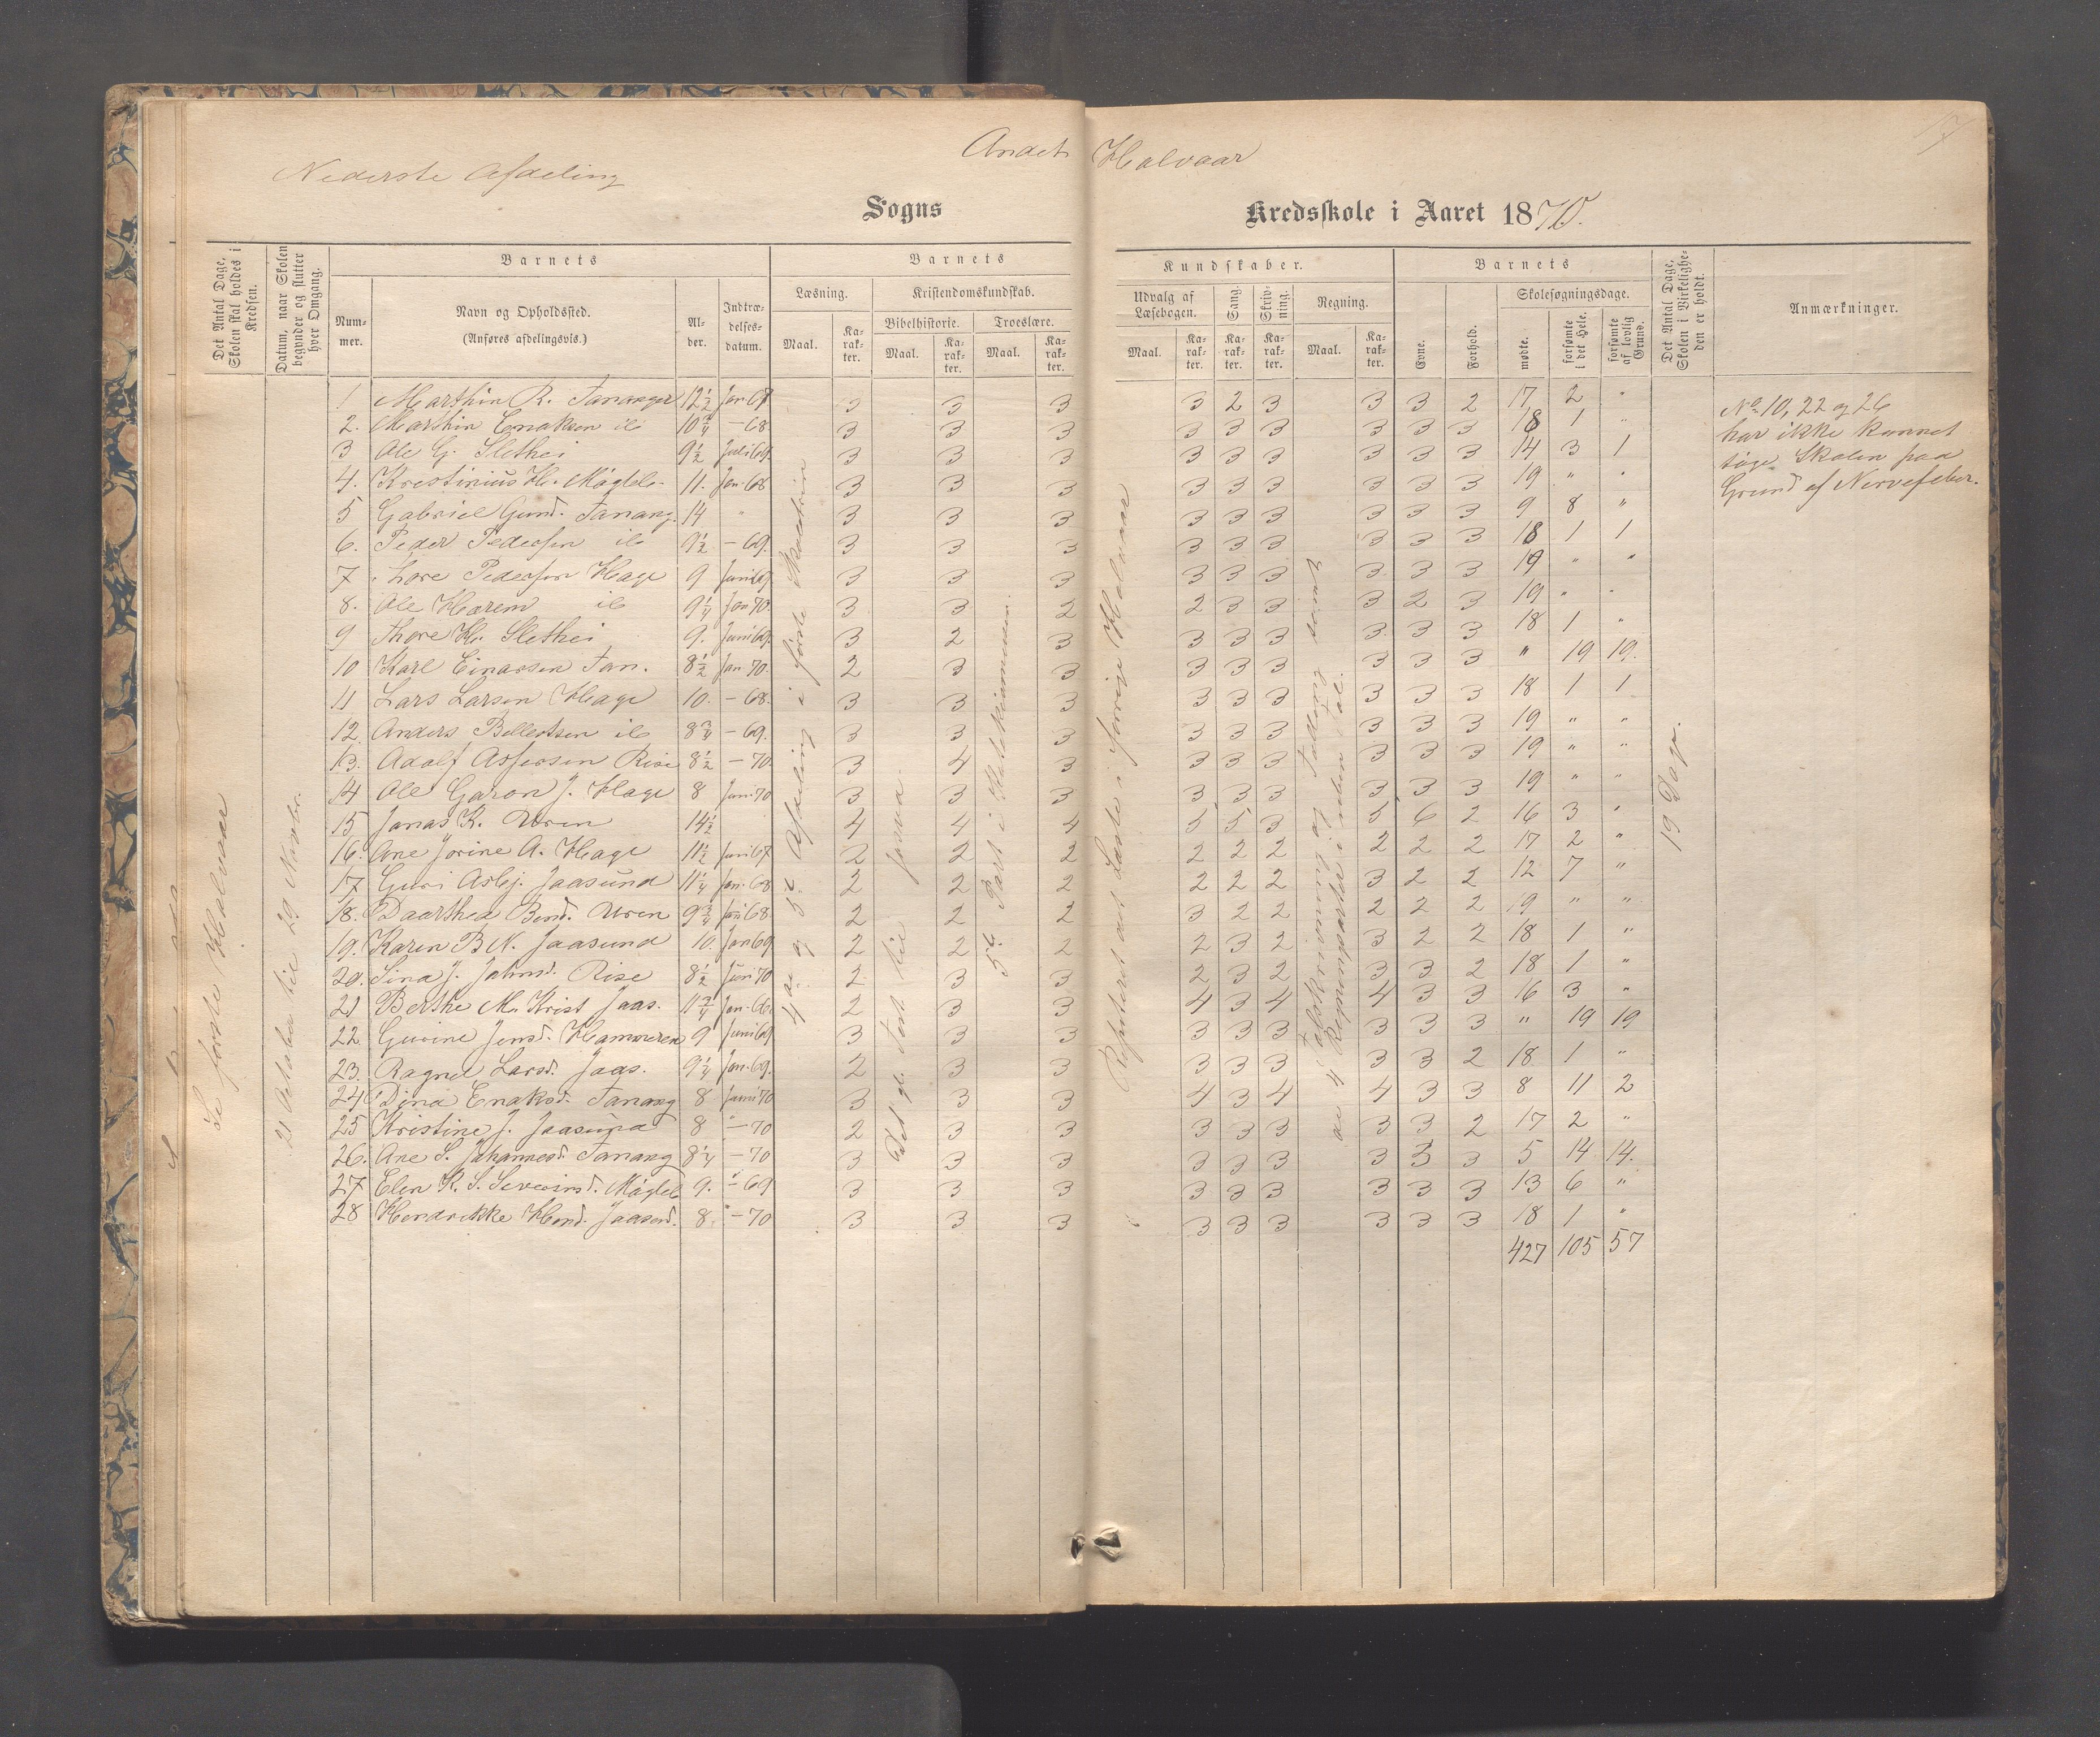 Andet Halvaar
Nederste Afdeling
Sogns Kredsskole i Aaret 1870.
Det Antal Dage, Skolen skal holdes i Kredsen.
Datum, naar Skolen begynder og slutter hver Omgang.
Barnets
Num-mer.
Navn og Opholdssted.
(Anføres afdelingsvis.)
Al-der.
Indtræ-delses-datum.
Barnets Kundskaber.
Læsning.
Maal. Ka-rak-ter.
Kristendomskundskab.
Bibelhistorie. Troeslære.
Maal. Ka-rak-ter. Maal. Ka-rak-ter.
Udvalg af Læsebogen.
Maal. Ka-rak-ter.
Sang. Ka-rak-ter.
Skriv-ning. Ka-rak-ter.
Regning.
Maal. Ka-rak-ter.
Barnets
Evne. Forhold.
Skolesøgningsdage.
mødte. forsømte i det Hele. forsømte af lovlig Grund.
Det Antal Dage, Skolen i Virkelighe-den er holdt.
Anmærkninger.
Se første Halvaar
21 Oktober til 29 Novbr.
4de og 5te Afdeling i første Skoletrin
Det gl. Test. til
5te Part i Katekismussen.
Repeteret det Læste i forrige Halvaar
Talskrivning og Tælling samt
de 4 Regningsarter i uben. Tal.
19 Dage.
1 Marthin R. Tananger 12½ Jan 67 3 3 3 3 2 3 3 3 2 17 2 "
2. Marthin Enaksen ib 10¾ - 68 3 3 3 3 3 3 3 3 3 18 1 "
3 Ole G. Slethei 9½ Juli 69 3 3 3 3 3 3 3 3 3 14 3 1
4. Krestinius H. Mågleb. 11. Jan 68 3 3 3 3 3 3 3 3 3 19 " "
5 Gabriel Gund. Tanang. 14 " 3 3 3 3 3 3 3 3 3 9 8 "
6. Peder Pedersen ib 9½ - 69. 3 3 3 3 3 3 3 3 3 18 1 1
7 Tore Pedersen Hage 9 Juni 69 3 3 3 3 3 3 3 3 3 19 " "
8. Ole Harem ib 9¼ Jan 70. 3 3 2 2 3 3 3 2 3 19 " "
9 Thore K. Slethei 9. Juni 69 3 2 3 3 3 3 3 3 3 18 1 "
10 Karl Einarsen Tan. 8½ Jan 70. 2 3 3 3 3 3 3 3 3 " 19 19.
11 Lars Larsen Hage 10. - 68. 3 3 3 3 3 3 3 3 3 18 1 1
12. Anders Bellertsen ib 8¾ - 69. 3 3 3 3 3 3 3 3 3 19 " "
13. Adolf Assersen Rise 8½ - 70. 3 4 3 3 3 3 3 3 3 19 " "
14 Ole Garon J. Hage 8 Juni 70 3 3 3 3 3 3 3 3 3 19 " "
15 Jonas K. Uren 14½ 4 4 4 5 5 3 5 6 2 16 3 "
16. Ane Jorine A. Hage 11½ Juni 67 2 2 2 2 2 2 2 2 2 17 2 "
17 Guri Asbj. Jaasund 11¼ Jan. 68 2 2 2 2 2 2 3 2 2 12 7 "
18. Daarthea Bend. Uren 9¾ Juni 68. 2 2 2 3 2 2 2 2 2 19 " "
19. Karen B N. Jaasund 10. Jan 69 2 2 2 2 3 2 3 2 2 18 1 "
20. Sina J. Johnsd. Rise 8½ Juni 70 2 3 3 2 3 2 3 3 2 18 1 "
21 Berthe M. Krist Jaas. 11¾ Jan. 66. 2 3 3 4 3 4 4 3 3 16 3 "
22 Gurine Jensd. Hammeren 9 Juni 69 3 3 3 3 3 3 3 3 3 " 19 19
23. Ragnil Larsd. Jaas. 9¼ Jan. 69. 2 3 3 3 3 3 3 3 2 18. 1 "
24 Dina Enaksd. Tanang 8 Juni 70 3 3 3 4 3 4 4 3 3 8 11 2
25 Kristine J. Jaasund 8 " - 70 2 3 3 3 3 3 3 3 2 17 2 "
26. Ane S. Johannesd. Tanang 8¼ - 70 3 3 3 3 3 3 3 3 3 5 14 14.
27 Elen K. S. Severinsd. Mågleb 9. " - 69 3 3 3 3 3 3 3 3 3 13 6 "
28 Hendrikke Hend. Jaasund. 8. " - 70 3 3 3 3 3 3 3 3 3 18 1 "
427 105 57
No 10, 22 og 26
har ikke kunnet
søge Skolen paa
Grund af Nervefeber.